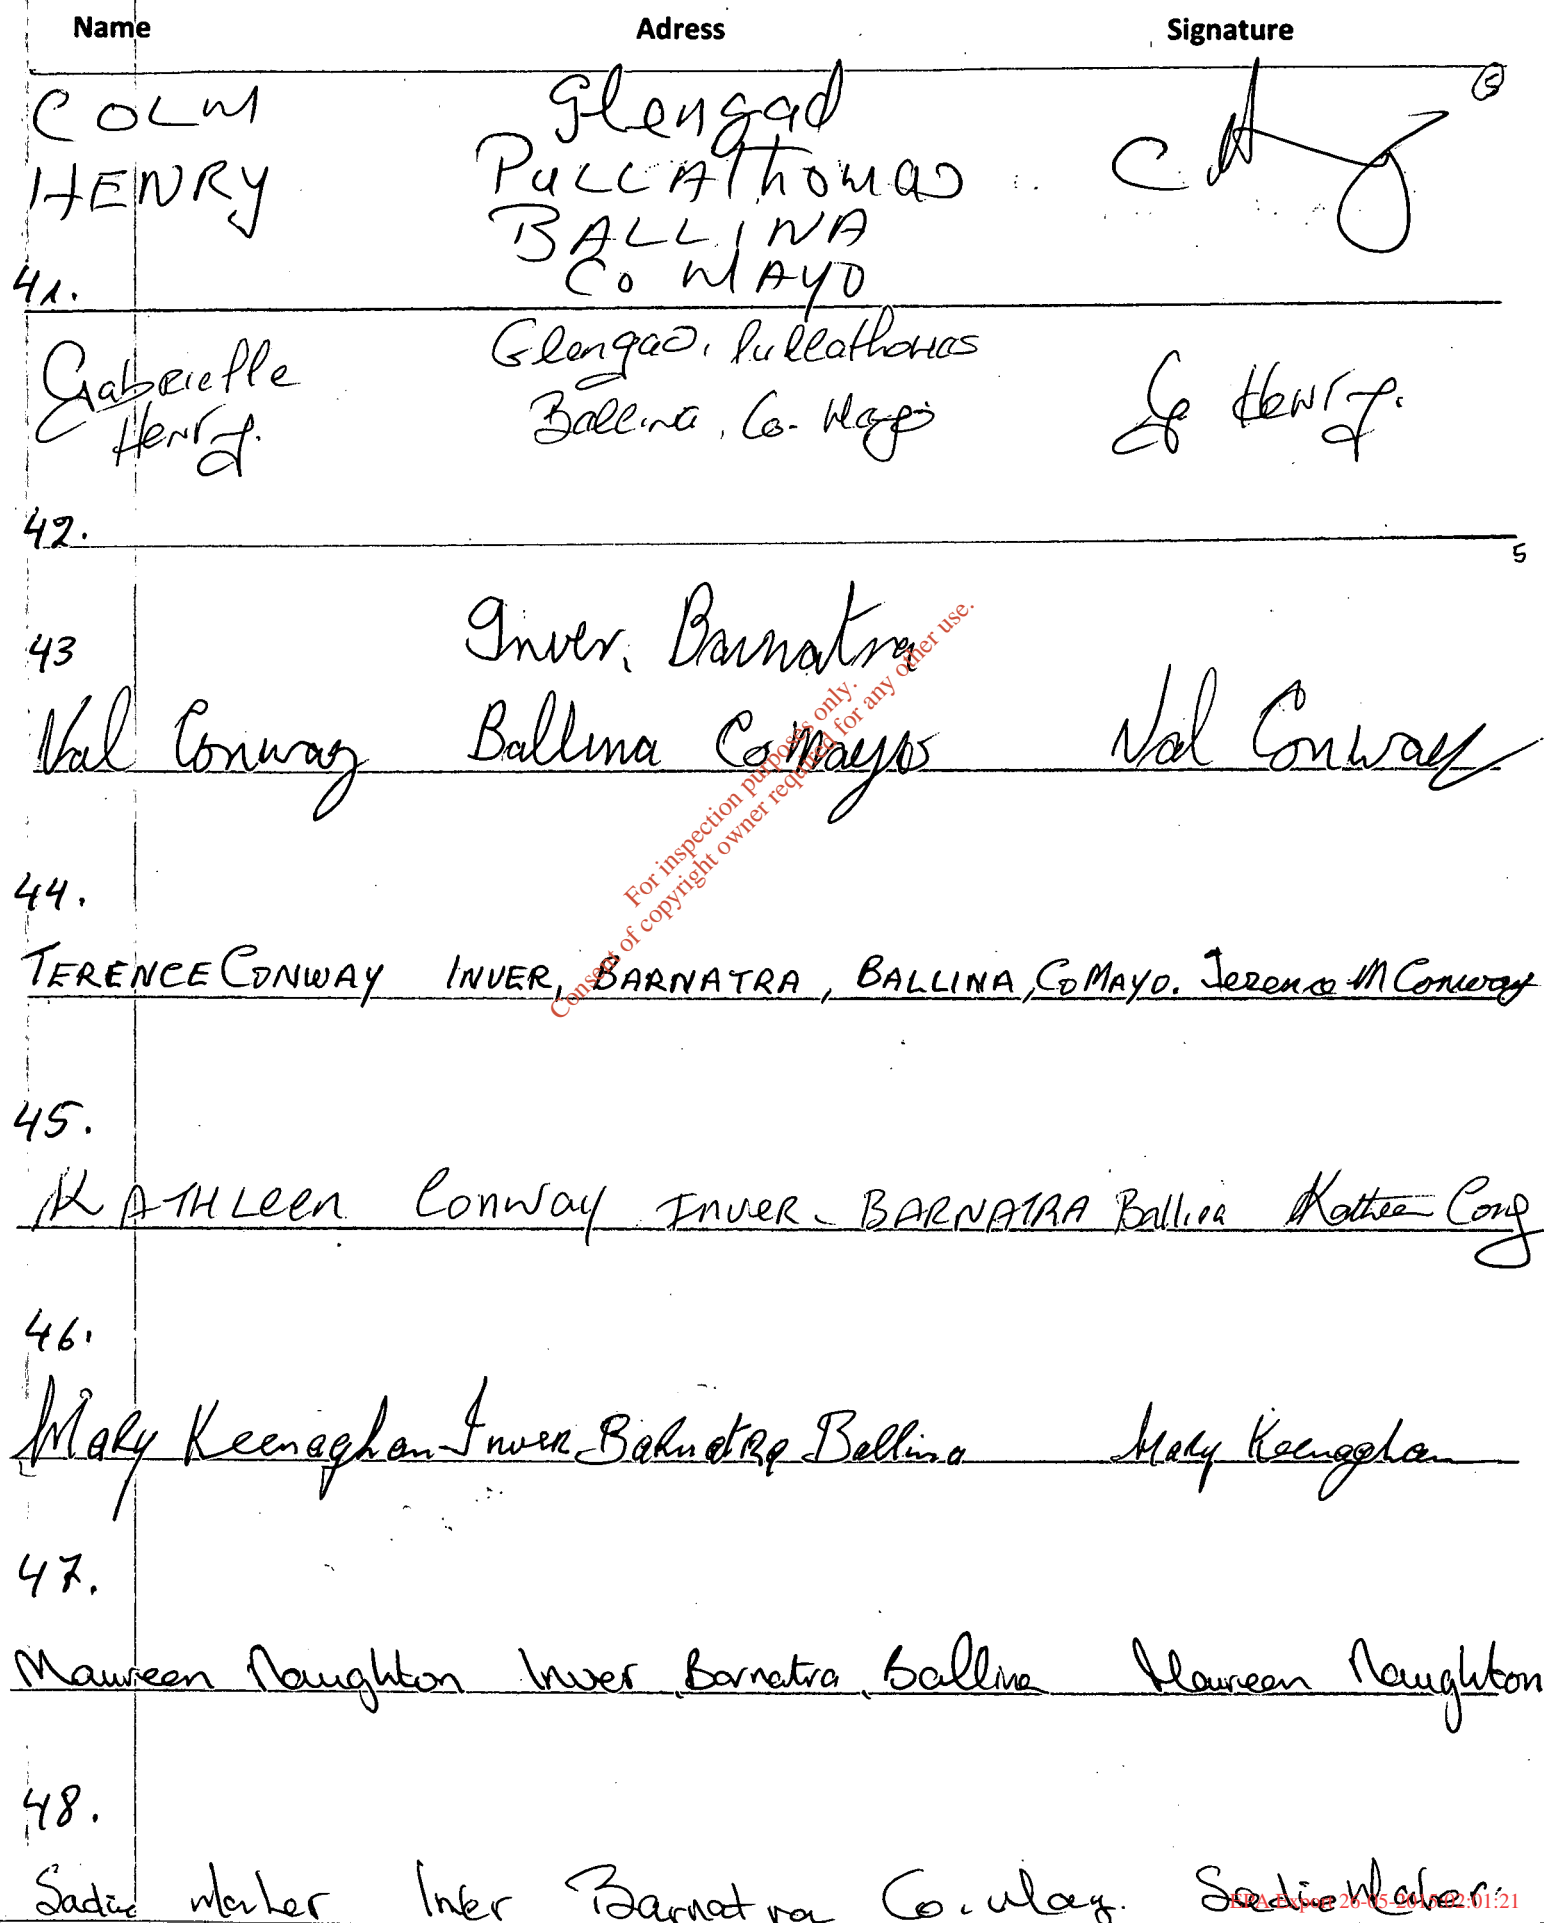 Name Adress Signature
COLM Glengad C H 5
HENRY PULLAThomas
BALLINA
41. Co MAYO
Gabrielle Glengad, Pullathomas G Henry.
Henry. Ballina, Co. Mayo
42.
5
43 Inver, Barnatra
Val Conway Ballina Co Mayo Val Conway
44.
TERENCE CONWAY INVER, BARNATRA, BALLINA, Co MAYO. Terence M Conway
45.
KATHLEEN Conway INVER - BARNATRA Ballina Kathleen
46.
Mary Keenaghan Inver Barnatra Ballina Mary Keenaghan
47.
Maureen Naughton Inver, Barnatra, Ballina Maureen Naughton
48.
Sadie Inver Barnatra Co. Mayo. Sadie
For inspection purposes only.
Consent of copyright owner required for any other use.
EPA Export 26-05-2015:02:01:21